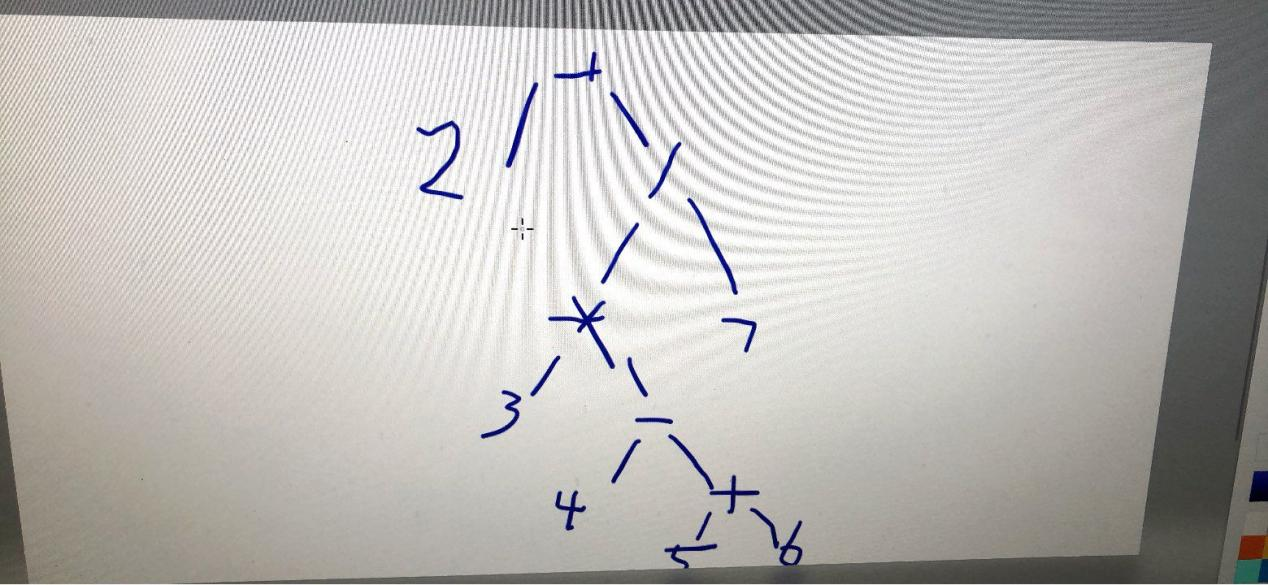 +
2 /
* 7
3 -
4 +
5 6